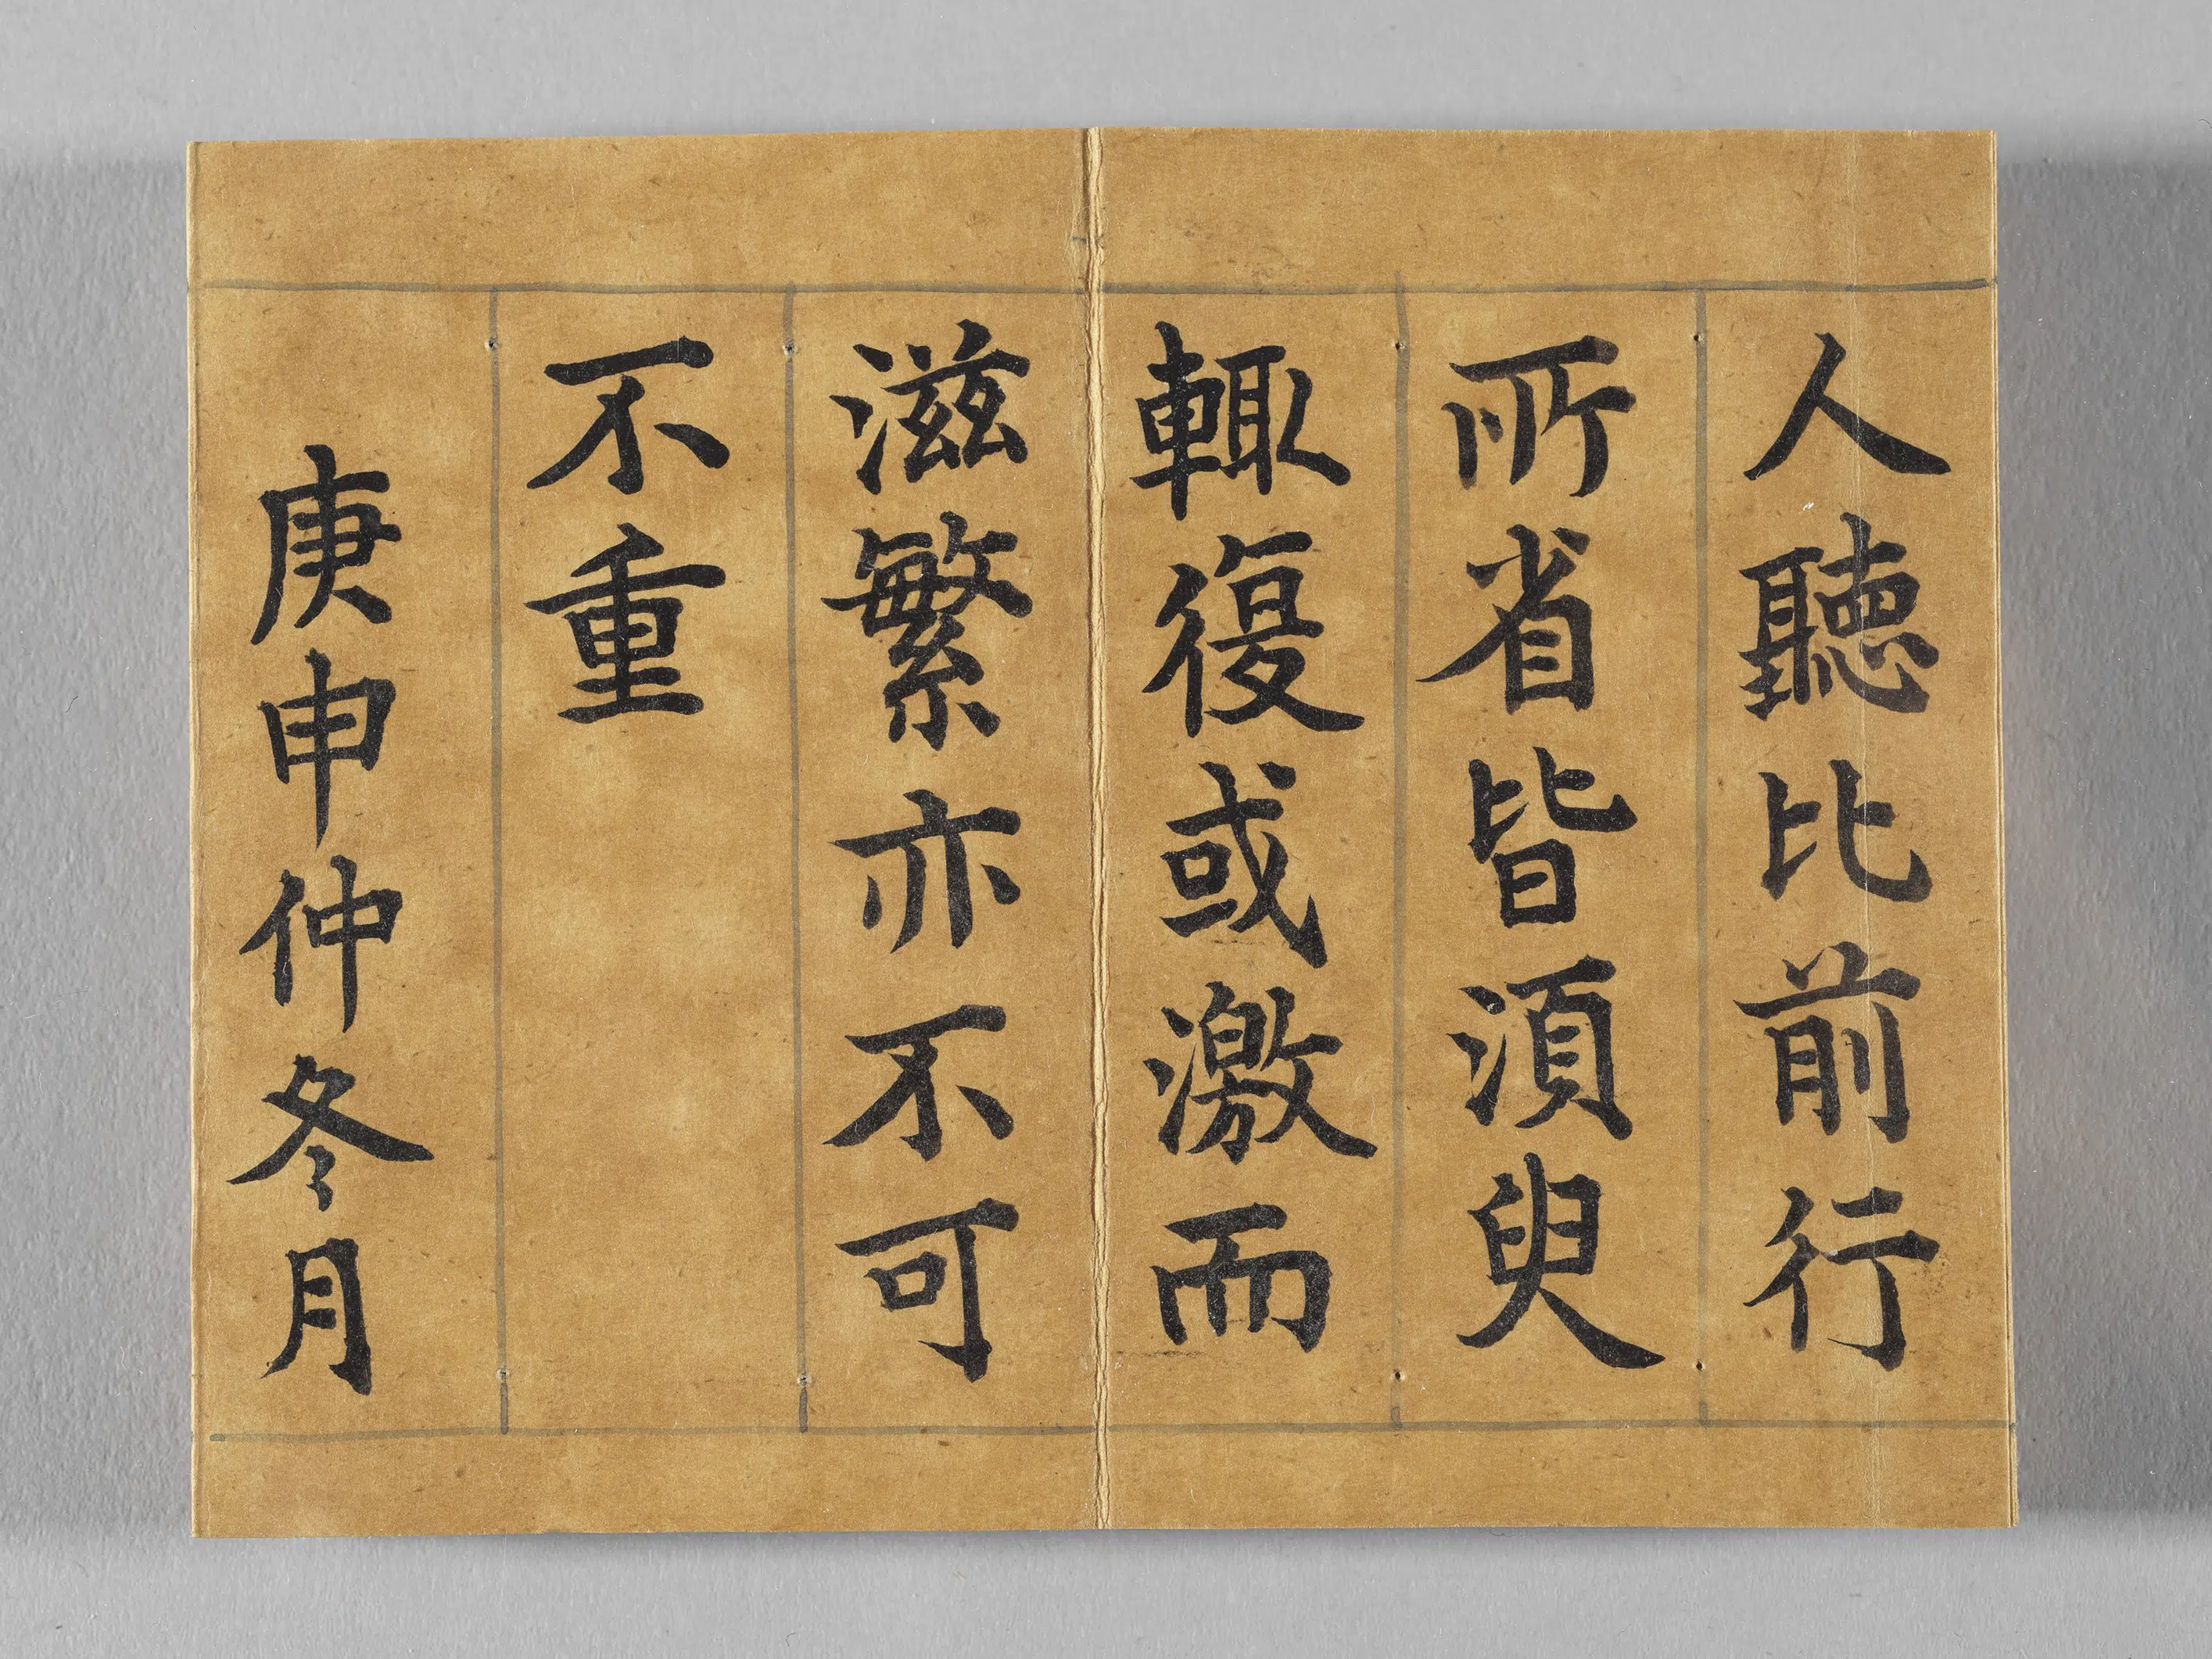 人聽比前行
所省皆湏臾
輙復或激而
滋繁亦不可
不重
庚申仲冬月